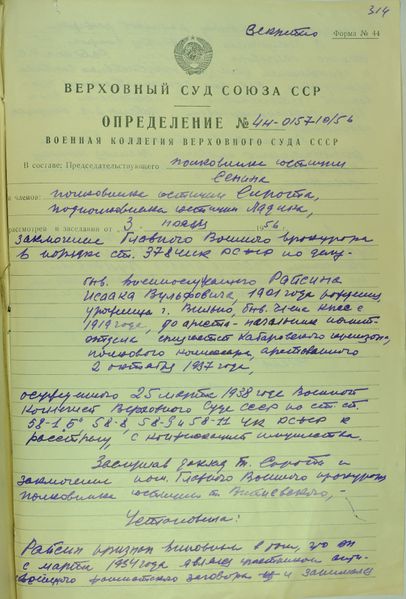 314
Секретно
Форма № 44
ВЕРХОВНЫЙ СУД СОЮЗА ССР
ОПРЕДЕЛЕНИЕ № 4н-015710/56
ВОЕННАЯ КОЛЛЕГИЯ ВЕРХОВНОГО СУДА СССР
В составе: Председательствующего полковника юстиции
Сенина
и членов: полковника юстиции Сирота,
подполковника юстиции
рассмотрев в заседании от „ 3 “ 1956 г.
заключение Главного Военного прокурора
в порядке ст. 378 УПК РСФСР по делу
быв. военнослужащего Райсина
Исаака Вульфовича, 1901 года рождения,
уроженца г. Вильно, быв. члена КПСС с
1919 года, до ареста - начальника полит-
отдела гарнизона,
полкового комиссара, арестованного
2 октября 1937 года,
осужденного 25 марта 1938 года Военной
Коллегией Верховного Суда СССР по ст. ст.
58-1 „б“ 58-8, 58-9 и 58-11 УК РСФСР к
расстрелу, с конфискацией имущества.
Заслушав доклад т. Сирота и
заключение пом. Главного Военного прокурора
полковника юстиции т.
Установила:
Райсин признан виновным в том, что он
с марта 1934 года являлся участником анти-
военного фашистского заговора и занимался